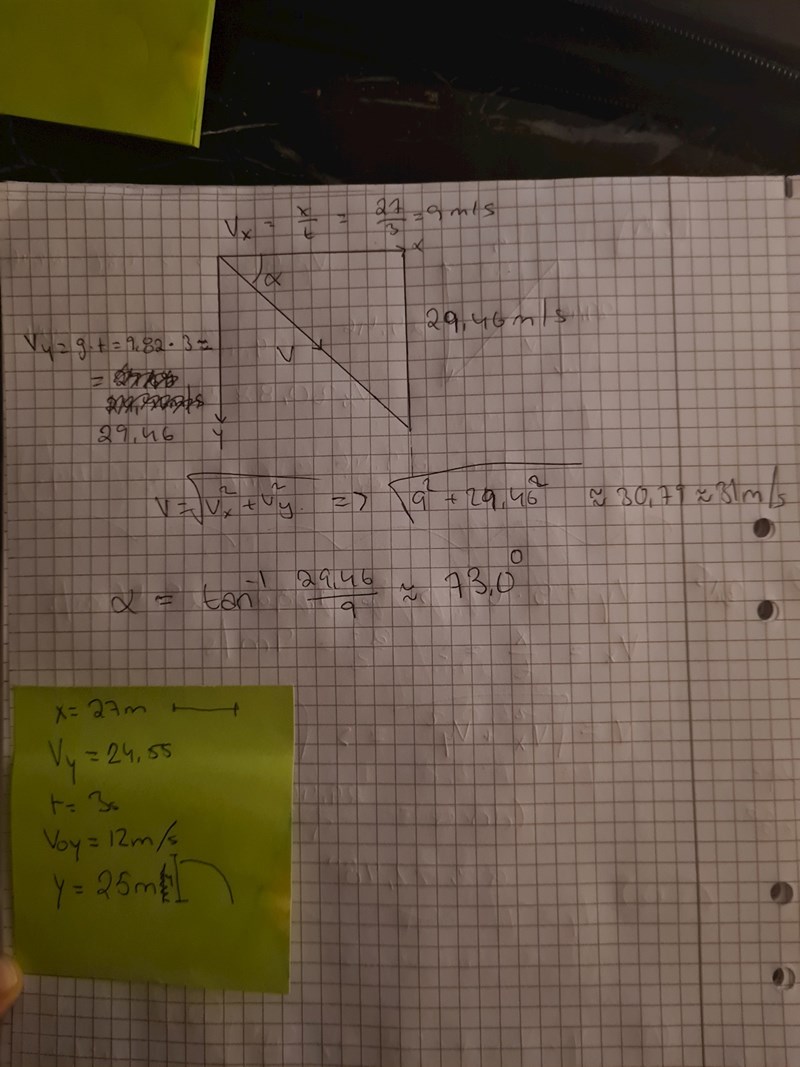 Vx = x/t = 27/3 = 9 m/s
x
α
29,46 m/s
Vy = g·t = 9.82 · 3 =
V
=
29,46
y
V = √(Vx² + Vy²) => √(9² + 29,46²) ≈ 30,79 ≈ 31 m/s
α = tan⁻¹ 29,46/9 ≈ 73,0°
x = 27m
Vy = 24,55
t = 3s
Voy = 12 m/s
y = 25m